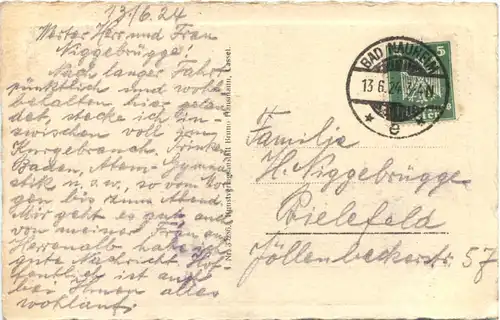 13/6.24
Werter Herr und Frau
Niggebrügge!
Nach langer Fahrt
pünktlich und wohl
behalten hier gelan
det, stecke ich in-
zwischen voll zum
Kurgebrauch. Trinken,
Baden, Atem-Gymna
stik u.s.w. so vom Mor
gen bis zum Abend.
Mir geht es gut, auch
von meiner Frau aus
Herrenalb habe ich
gute Nachricht. Hof
fentlich ist auch
bei Ihnen alles
wohlauf.
Kunstverlagsanstalt Bruno Hansmann, Cassel.
BAD NAUHEIM
13.6.24
* e
5
Familie
H. Niggebrügge
Bielefeld
Jöllenbeckerstr. 57